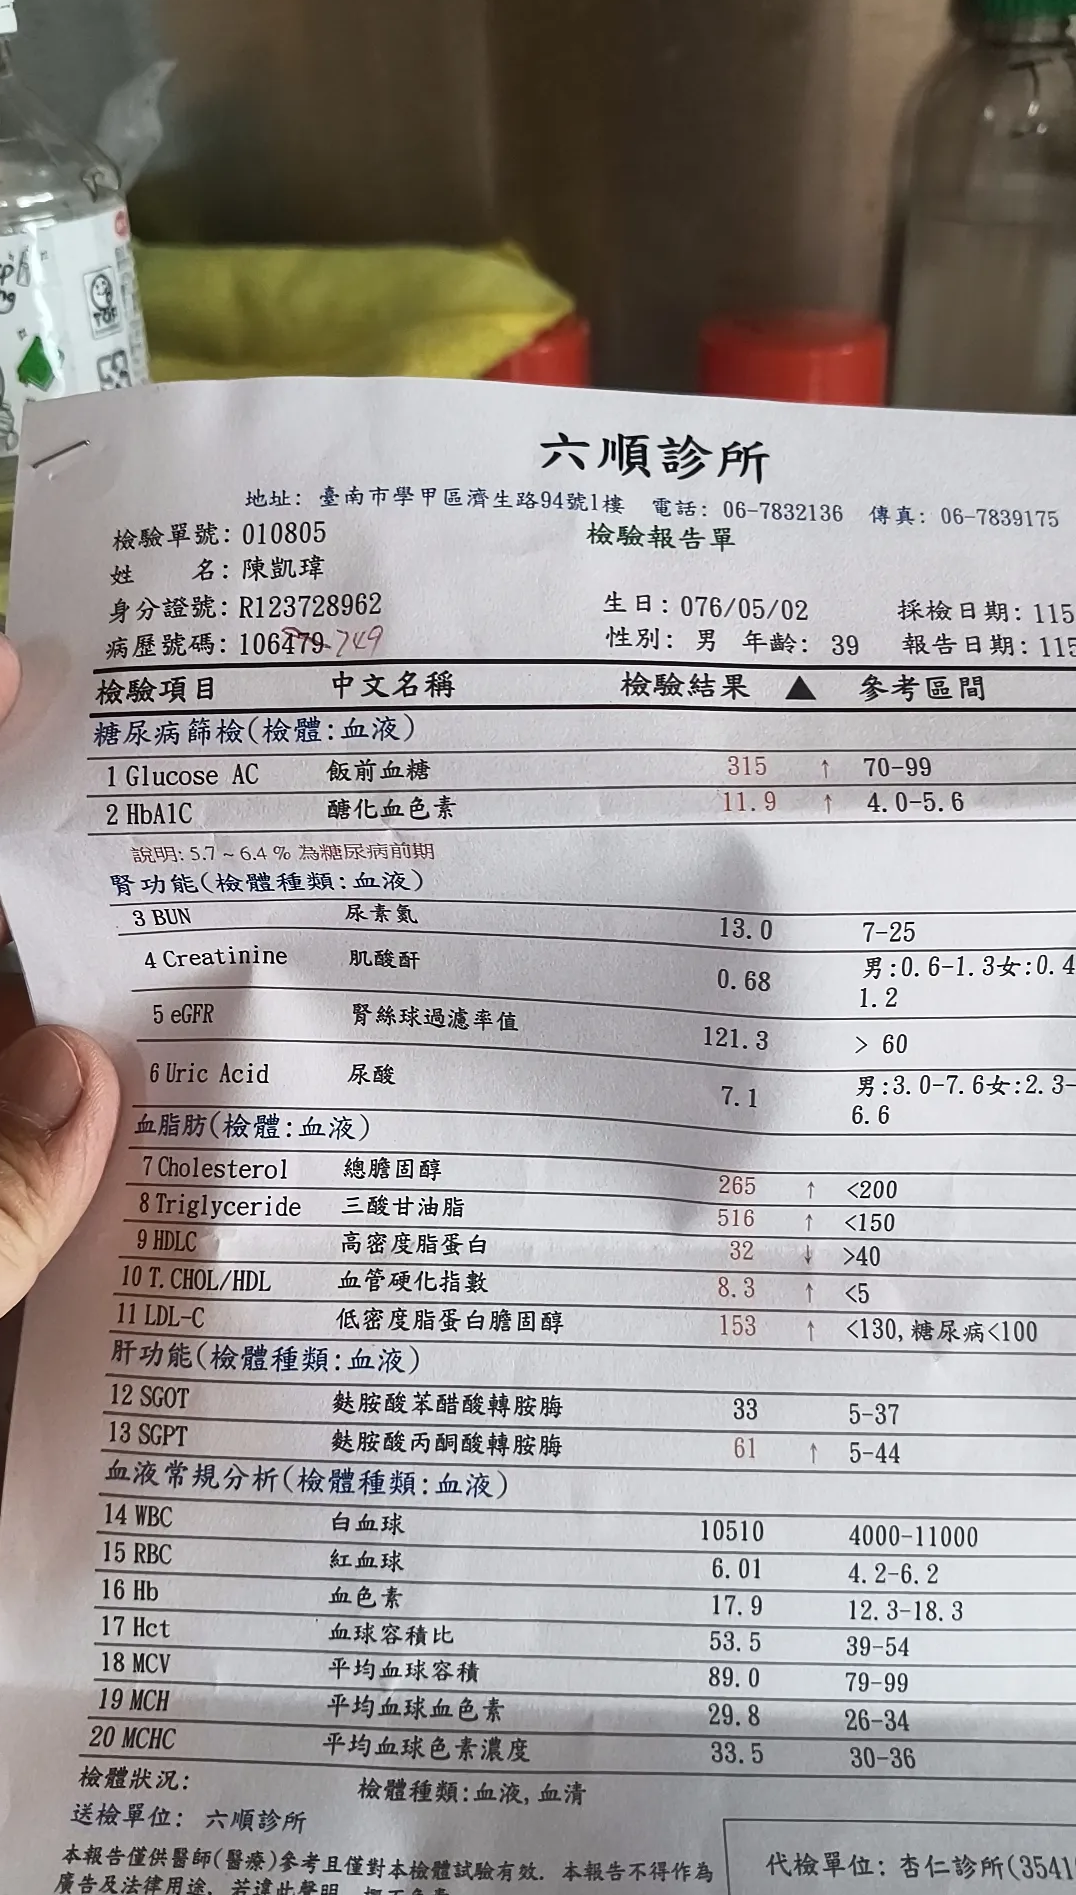 TOP
六順診所
地址: 臺南市學甲區濟生路94號1樓 電話: 06-7832136 傳真: 06-7839175
檢驗單號: 010805 檢驗報告單
姓 名: 陳凱瑋
身分證號: R123728962 生日: 076/05/02 採檢日期: 115
病歷號碼: 106479 749 性別: 男 年齡: 39 報告日期: 115
檢驗項目 中文名稱 檢驗結果 ▲ 參考區間
糖尿病篩檢(檢體:血液)
1 Glucose AC 飯前血糖 315 ↑ 70-99
2 HbA1C 醣化血色素 11.9 ↑ 4.0-5.6
說明: 5.7 ~ 6.4 % 為糖尿病前期
腎功能(檢體種類:血液)
3 BUN 尿素氮 13.0 7-25
4 Creatinine 肌酸酐 0.68 男:0.6-1.3女:0.4
1.2
5 eGFR 腎絲球過濾率值 121.3 > 60
6 Uric Acid 尿酸 7.1 男:3.0-7.6女:2.3-
6.6
血脂肪(檢體:血液)
7 Cholesterol 總膽固醇 265 ↑ <200
8 Triglyceride 三酸甘油脂 516 ↑ <150
9 HDLC 高密度脂蛋白 32 ↓ >40
10 T. CHOL/HDL 血管硬化指數 8.3 ↑ <5
11 LDL-C 低密度脂蛋白膽固醇 153 ↑ <130,糖尿病<100
肝功能(檢體種類:血液)
12 SGOT 麩胺酸苯醋酸轉胺脢 33 5-37
13 SGPT 麩胺酸丙酮酸轉胺脢 61 ↑ 5-44
血液常規分析(檢體種類:血液)
14 WBC 白血球 10510 4000-11000
15 RBC 紅血球 6.01 4.2-6.2
16 Hb 血色素 17.9 12.3-18.3
17 Hct 血球容積比 53.5 39-54
18 MCV 平均血球容積 89.0 79-99
19 MCH 平均血球血色素 29.8 26-34
20 MCHC 平均血球色素濃度 33.5 30-36
檢體狀況: 檢體種類:血液,血清
送檢單位: 六順診所
本報告僅供醫師(醫療)參考且僅對本檢體試驗有效. 本報告不得作為 代檢單位: 杏仁診所(3541
廣告及法律用途. 若違此聲明